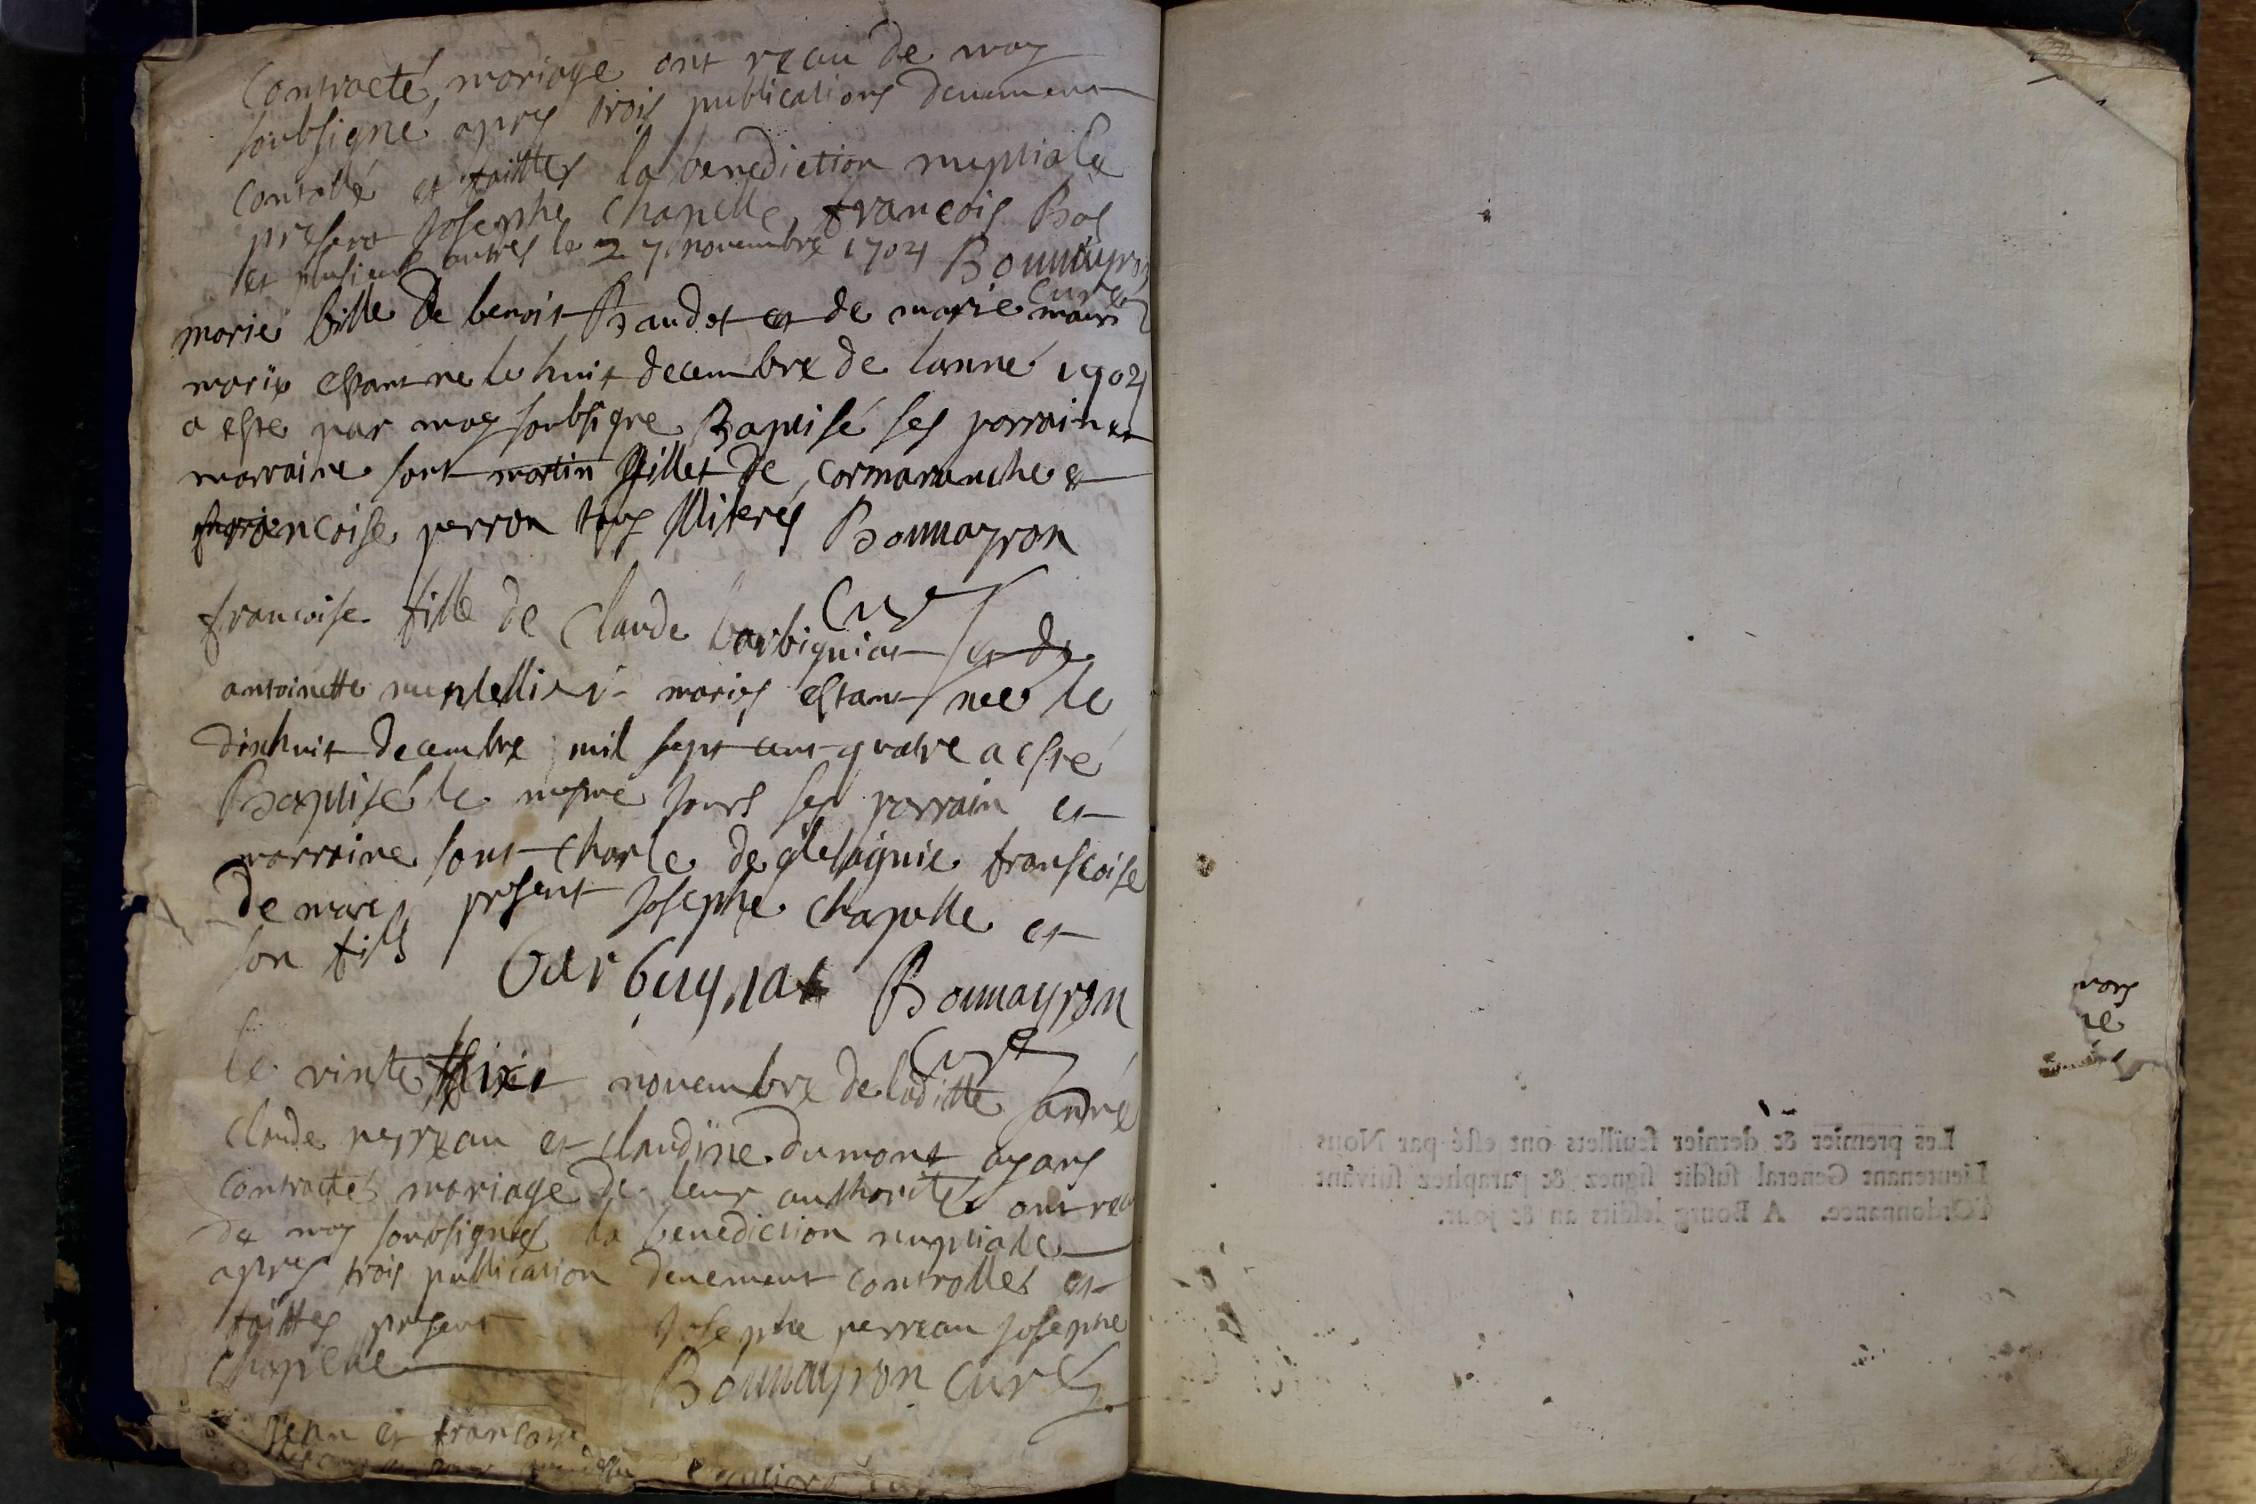 Contracté mariage ont reçu de moy
soubsigné apres trois publications deuement
controllé et faittes la benediction nuptiale
present Josephe Chapelle, francois Bos
et plusieurs autres le 27 novembre 1704 Bonnayron
Curé
marie fille de benoit Baudet et de marie
mariés estant ne le huit decembre de lanné 1704
a esté par moy soubsigne Baptisé ses parrain et
marraine sont martin fillet de cormaranche et
francoise perron tous illiterés Bonnayron
Curé
francoise fille de Claude barbiguiat et de
antoinette mariés estant née le
dixhuit decembre mil sept cent quatre a esté
Baptisé le mesme jours ses parrain et
marraine sont charle de francoise
de mare present Josephe chapelle et
son fils
Barbuynat Bonnayron
Curé
le vinte novembre de laditte année
Claude perreau et claudine dumont ayans
contracté mariage de leur authorité ont receu
de moy soubsignés la benediction nuptiale
apres trois publication deuement controlles et
faittes present Josephe perreau Josephe
chapelle Bonnayron Curé
Jean et francoise
vors
né
Les premier & dernier feuillets ont esté par Nous
Lieutenant General susdit signez & paraphez suivant
l'Ordonnance. A Bourg lesdits an & jour.